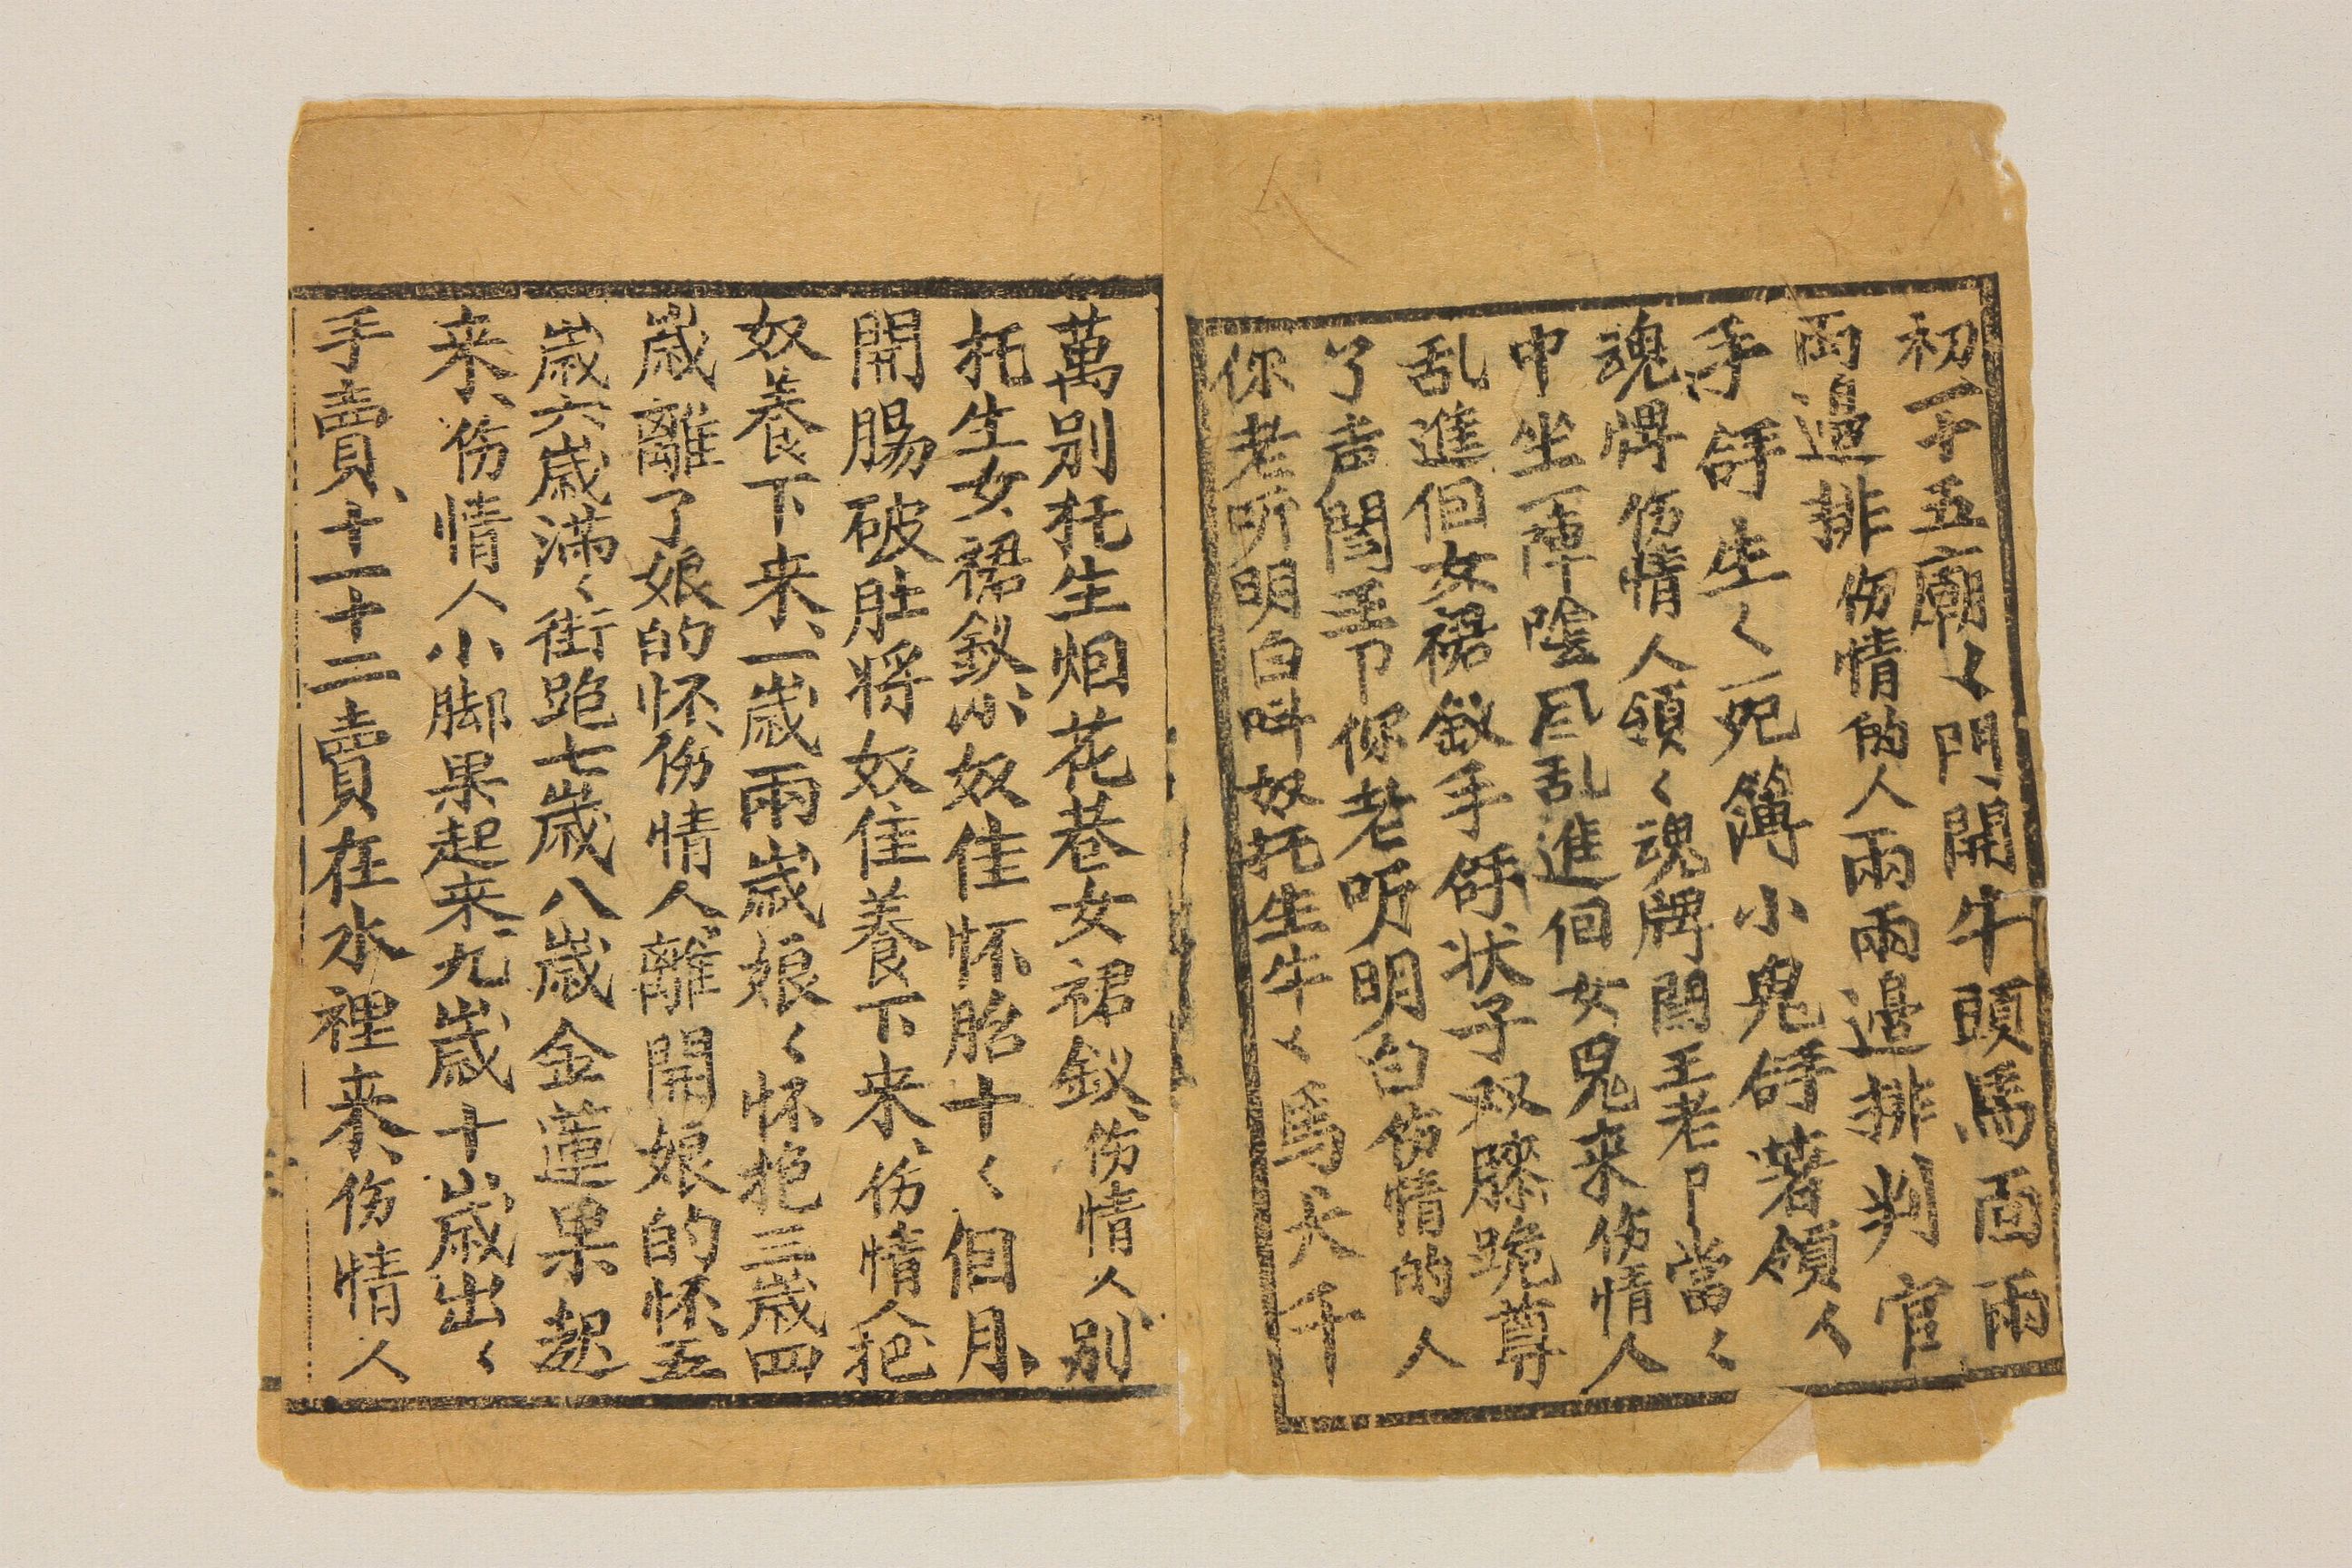 初一十五廟〻門開牛頭馬面兩
兩邉排伤情的人兩兩邉排判官
手拿生〻死簿小鬼拿著領〻
魂牌伤情人領〻魂牌閻王老卩當〻
中坐一陣陰風乱進個女鬼来伤情人
乱進個女裙釵手拿状子双膝跪尊
了声閻王卩你老听明白伤情的人
你老听明白叫奴托生牛〻馬大千
萬别托生烟花巷女裙釵伤情人别
托生女裙釵小奴佳怀胎十〻個月
開腸破肚将奴佳養下来伤情人把
奴養下来一歳兩歳娘〻怀抱三歳四
歳離了娘的怀伤情人離開娘的怀五
歳六歳滿〻街跑七歳八歳金蓮果起
来伤情人小脚果起来九歳十歳出〻
手賣十一十二賣在水裡来伤情人